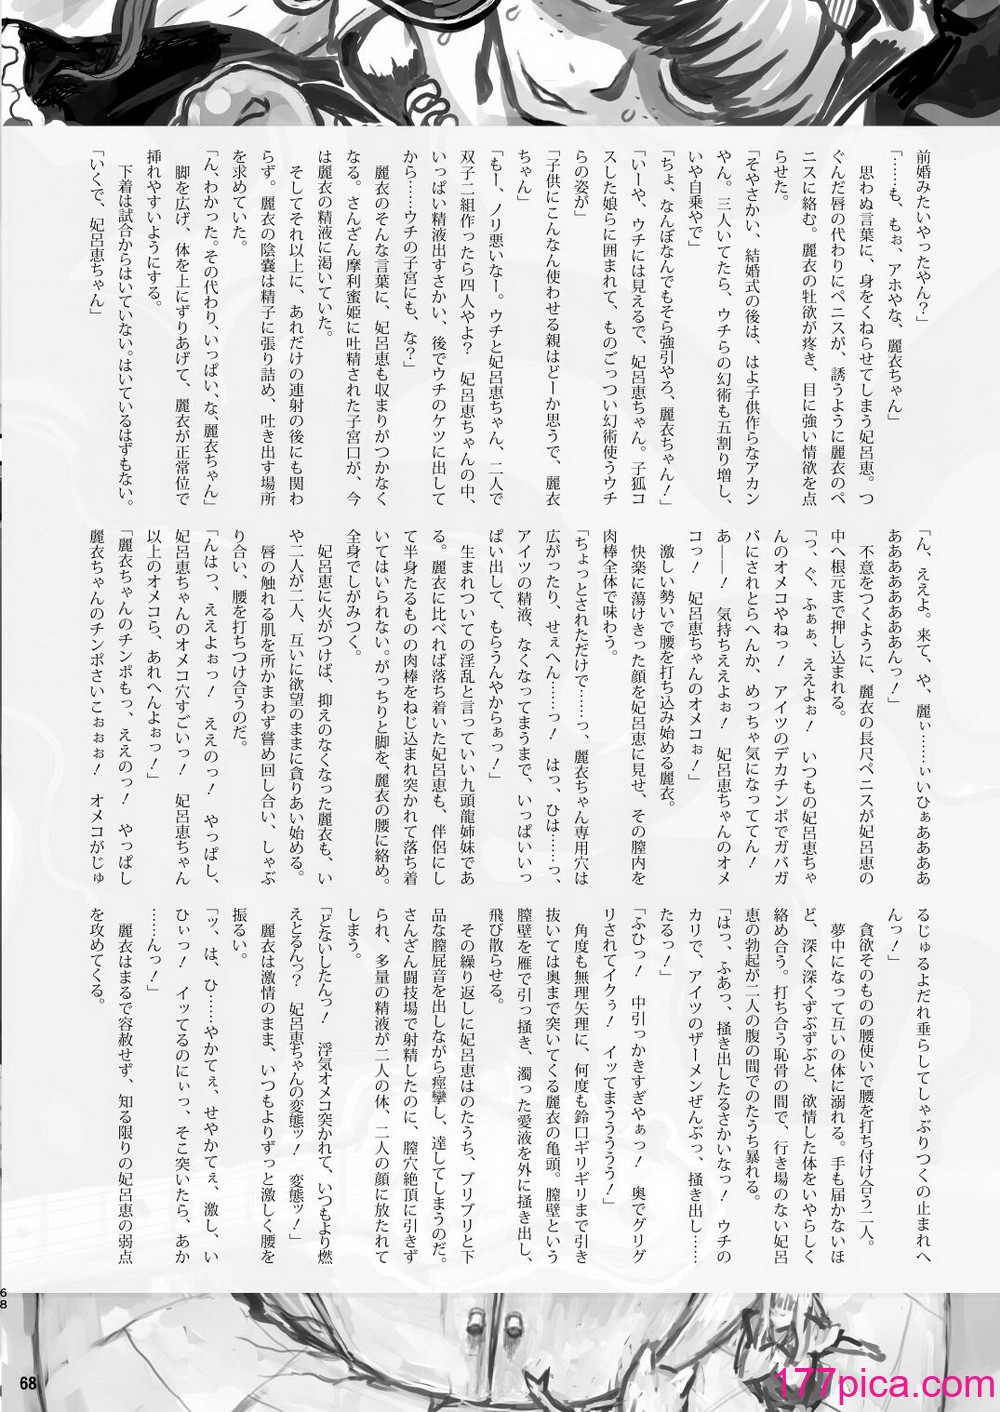 前婚みたいやったやん？」
「……も、もぉ、アホやな、麗衣ちゃん」
　思わぬ言葉に、身をくねらせてしまう妃呂恵。つ
ぐんだ唇の代わりにペニスが、誘うように麗衣のペ
ニスに絡む。麗衣の牡欲が疼き、目に強い情欲を点
らせた。
「そやさかい、結婚式の後は、はよ子供作らなアカン
やん。三人いてたら、ウチらの幻術も五割り増し、
いや自乗やで」
「ちょ、なんぼなんでもそら強引やろ、麗衣ちゃん！」
「いーや、ウチには見えるで、妃呂恵ちゃん。子狐コ
スした娘らに囲まれて、ものごっつい幻術使うウチ
らの姿が」
「子供にこんなん使わせる親はどーか思うで、麗衣
ちゃん」
「もー、ノリ悪いなー。ウチと妃呂恵ちゃん、二人で
双子二組作ったら四人やよ？　妃呂恵ちゃんの中、
いっぱい精液出すさかい、後でウチのケツに出して
から……ウチの子宮にも、な？」
　麗衣のそんな言葉に、妃呂恵も収まりがつかなく
なる。さんざん摩利蜜姫に吐精された子宮口が、今
は麗衣の精液に渇いていた。
　そしてそれ以上に、あれだけの連射の後にも関わ
らず。麗衣の陰嚢は精子に張り詰め、吐き出す場所
を求めていた。
「ん、わかった。その代わり、いっぱい、な、麗衣ちゃん」
　脚を広げ、体を上にずりあげて、麗衣が正常位で
挿れやすいようにする。
　下着は試合からはいていない。はいているはずもない。
「いくで、妃呂恵ちゃん」
「ん、ええよ。来て、や、麗ぃ……ぃいひぁああああ
ああああああああんっ！」
　不意をつくように、麗衣の長尺ペニスが妃呂恵の
中へ根元まで押し込まれる。
「っ、ぐ、ふぁぁ、ええよぉ！　いつもの妃呂恵ちゃ
んのオメコやねっ！　アイツのデカチンポでガバガ
バにされとらへんか、めっちゃ気になっててん！
あ――！　気持ちええよぉ！　妃呂恵ちゃんのオメ
コっ！　妃呂恵ちゃんのオメコぉ！」
　激しい勢いで腰を打ち込み始める麗衣。
　快楽に蕩けきった顔を妃呂恵に見せ、その膣内を
肉棒全体で味わう。
「ちょっとされただけで……っ、麗衣ちゃん専用穴は
広がったり、せぇへん……っ！　はっ、ひは……っ、
アイツの精液、なくなってまうまで、いっぱいいっ
ぱい出して、もらうんやからぁっ！」
　生まれついての淫乱と言っていい九頭龍姉妹であ
る。麗衣に比べれば落ち着いた妃呂恵も、伴侶にし
て半身たるものの肉棒をねじ込まれ突かれて落ち着
いてはいられない。がっちりと脚を、麗衣の腰に絡め。
全身でしがみつく。
　妃呂恵に火がつけば、抑えのなくなった麗衣も、い
や二人が二人、互いに欲望のままに貪りあい始める。
　唇の触れる肌を所かまわず嘗め回し合い、しゃぶ
り合い、腰を打ちつけ合うのだ。
「んはっ、ええよぉっ！　ええのっ！　やっぱし、
妃呂恵ちゃんのオメコ穴すごいっ！　妃呂恵ちゃん
以上のオメコら、あれへんよぉっ！」
「麗衣ちゃんのチンポもっ、ええのっ！　やっぱし
麗衣ちゃんのチンポさいこぉぉぉ！　オメコがじゅ
るじゅるよだれ垂らしてしゃぶりつくの止まれへ
んっ！」
　貪欲そのものの腰使いで腰を打ち付け合う二人。
　夢中になって互いの体に溺れる。手も届かないほ
ど、深く深くずぶずぶと、欲情した体をいやらしく
絡め合う。打ち合う恥骨の間で、行き場のない妃呂
恵の勃起が二人の腹の間でのたうち暴れる。
「はっ、ふあっ、掻き出したるさかいなっ！　ウチの
カリで、アイツのザーメンぜんぶっ、掻き出し……
たるっ！」
「ふひっ！　中引っかきすぎやぁっ！　奥でグリグ
リされてイクぅ！　イッてまうううう！」
　角度も無理矢理に、何度も鈴口ギリギリまで引き
抜いては奥まで突いてくる麗衣の亀頭。膣壁という
膣壁を雁で引っ掻き、濁った愛液を外に掻き出し、
飛び散らせる。
　その繰り返しに妃呂恵はのたうち、ブリブリと下
品な膣屁音を出しながら痙攣し、達してしまうのだ。
さんざん闘技場で射精したのに、膣穴絶頂に引きず
られ、多量の精液が二人の体、二人の顔に放たれて
しまう。
「どないしたんっ！　浮気オメコ突かれて、いつもより燃
えとるんっ？　妃呂恵ちゃんの変態ッ！　変態ッ！」
　麗衣は激情のまま、いつもよりずっと激しく腰を
振るい。
「ッ、は、ひ……やかてぇ、せやかてぇ、激し、い
ひぃっ！　イッてるのにぃっ、そこ突いたら、あか
……んっ！」
　麗衣はまるで容赦せず、知る限りの妃呂恵の弱点
を攻めてくる。
68
68
177pica.com